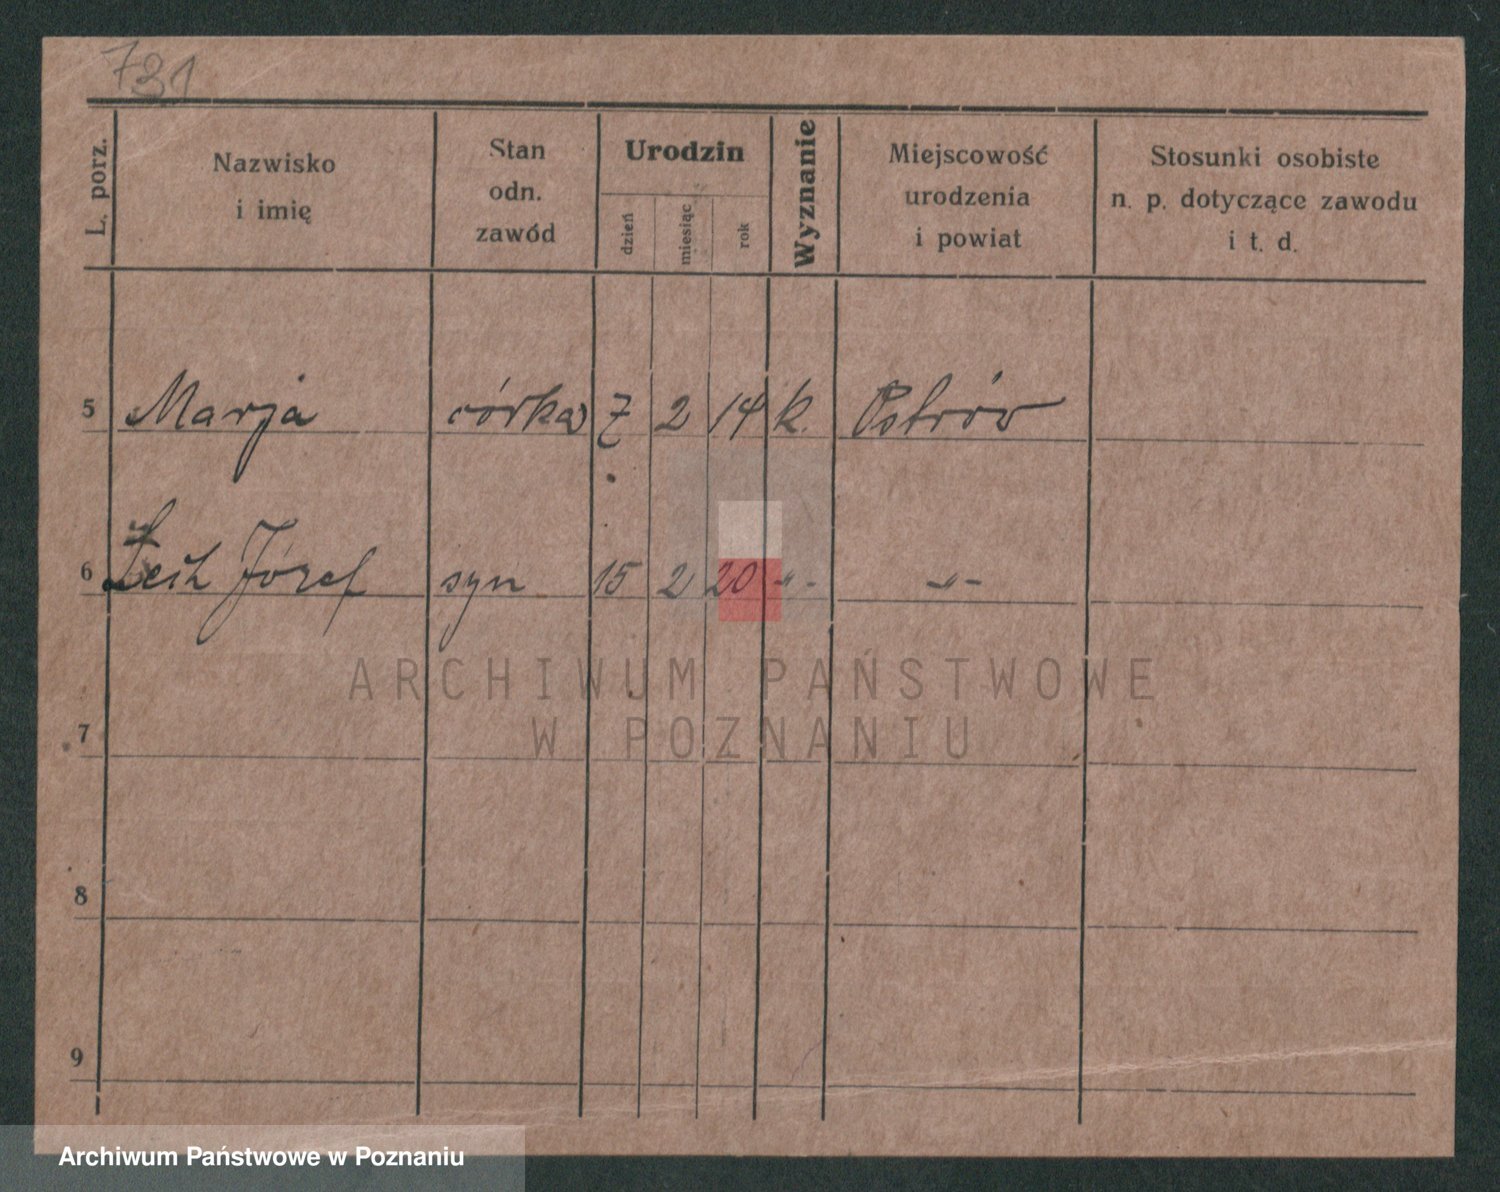 731
L. porz.
Nazwisko
i imię
Stan
odn.
zawód
Urodzin
dzień
miesiąc
rok
Wyznanie
Miejscowość
urodzenia
i powiat
Stosunki osobiste
n. p. dotyczące zawodu
i t. d.
5 Marja córka 7 2 14 k. Ostrów
6 Lech Józef syn 15 2 20 -"- -"-
ARCHIWUM PAŃSTWOWE
W POZNANIU
7
8
9
Archiwum Państwowe w Poznaniu